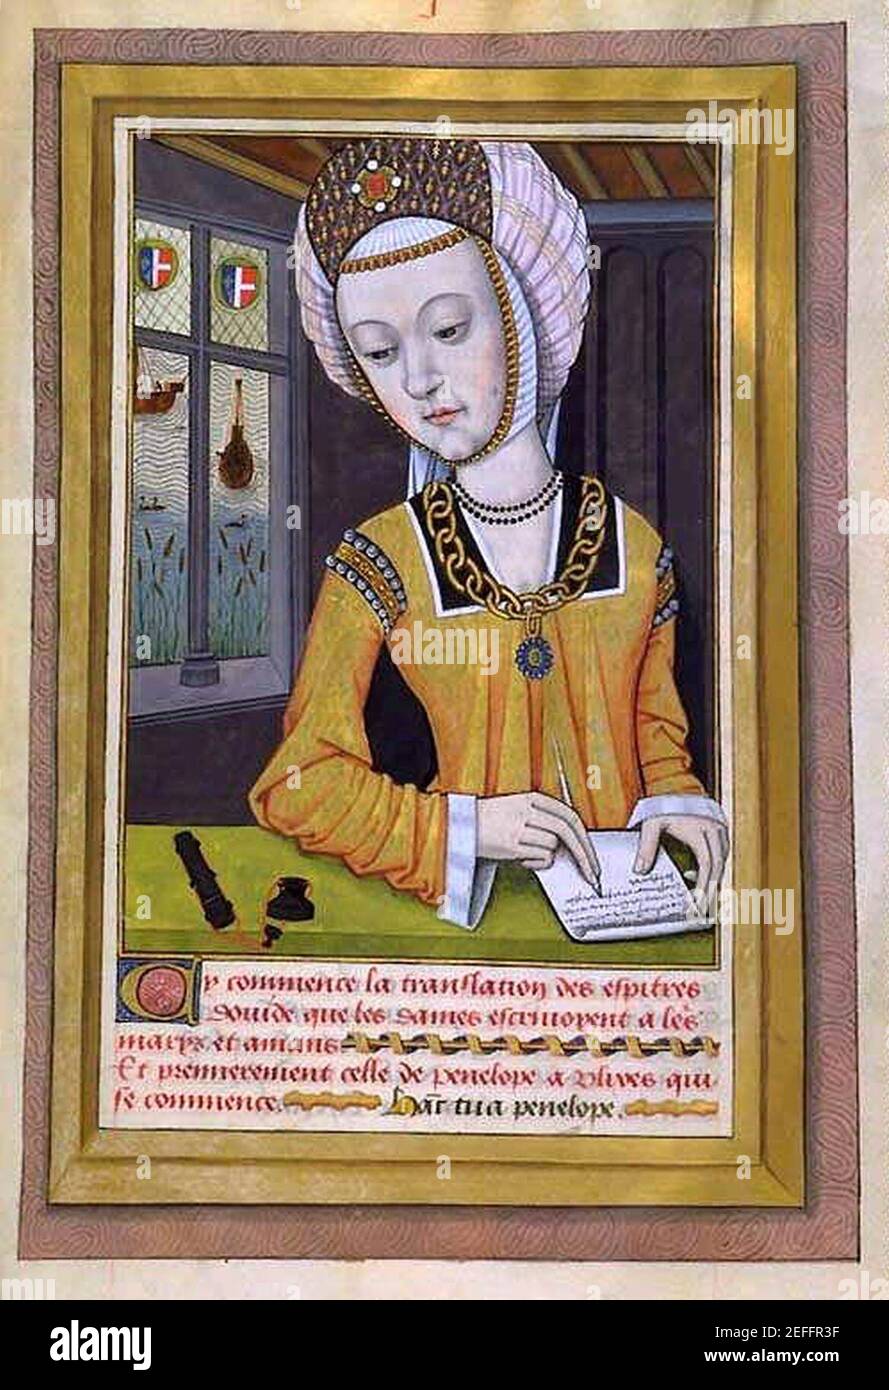 Cy commence la translation des espitres
Douide que les dames escriuoyent a les
marys et amans
Et premierement celle de penelope a Ulixes qui
se commence. Hāc tua penelope.
alamy
Image ID: 2EFFR3F
www.alamy.com